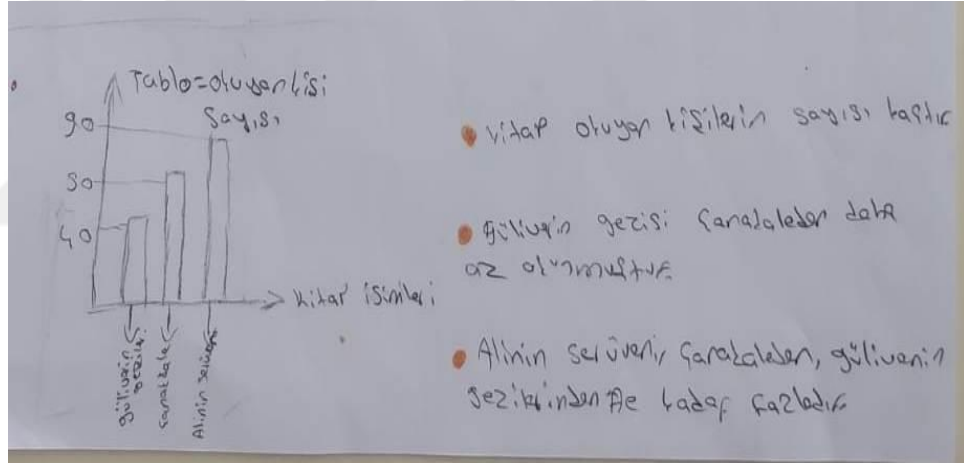 Tablo=okuyan kişi
Sayısı
90
50
40
kitap isimleri
güliverin gezileri
Çanakkale
Alinin serüveni
kitap okuyan kişilerin sayısı kaçtır
güliverin gezisi Çanakkaleden daha
az okunmuştur
Alinin serüveni, Çanakkaleden, güliverin
gezilerinden ne kadar fazladır